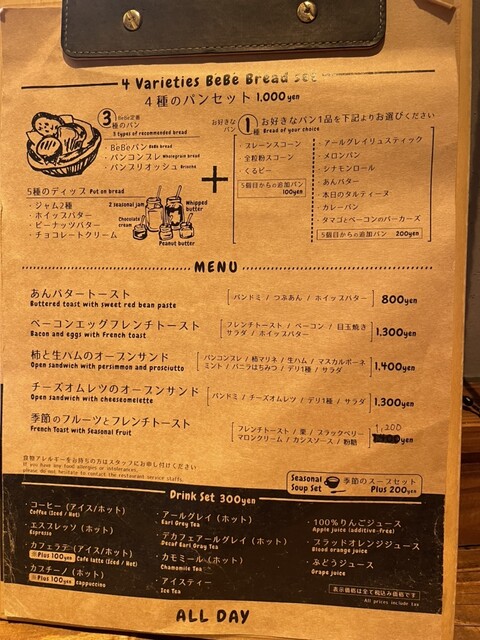 4 Varieties BeBe Bread set
4種のパンセット 1,000yen
3 BeBe定番
種のパン
3 types of recommended bread
・BeBeパン BeBe bread
・パンコンプレ Wholegrain bread
・パンブリオッシュ Brioche
5種のディップス Put on bread
・ジャム2種
・ホイップバター
・ピーナッツバター
・チョコレートクリーム
2 seasonal jam
Whipped butter
Chocolate cream
Peanut butter
+
お好きなパン
1種
お好きなパン1品を下記よりお選びください
Bread of your choice
・プレーンスコーン
・全粒粉スコーン
・くるビー
5個目からの追加パン
100yen
・アールグレイリュスティック
・メロンパン
・シナモンロール
・あんバター
・本日のタルティーヌ
・カレーパン
・タマゴとベーコンのバーガーズ
5個目からの追加パン 200yen
MENU
あんバタートースト
Buttered toast with sweet red bean paste
パンドミ / つぶあん / ホイップバター
800yen
ベーコンエッグフレンチトースト
Bacon and eggs with French toast
フレンチトースト / ベーコン / 目玉焼き
サラダ / ホイップバター
1,300yen
柿と生ハムのオープンサンド
Open sandwich with persimmon and prosciutto
パンコンプレ / 柿マリネ / 生ハム / マスカルポーネ
ミント / バニラはちみつ / デリ1種 / サラダ
1,400yen
チーズオムレツのオープンサンド
Open sandwich with cheeseomelette
パンドミ / チーズオムレツ / デリ1種 / サラダ
1,300yen
季節のフルーツとフレンチトースト
French Toast with Seasonal Fruit
フレンチトースト / 栗 / ブラックベリー
マロンクリーム / カシスソース / 粉糖
1,200
食物アレルギーをお持ちの方はスタッフにお申し付けください
If you have any food allergies or intolerances,
please do not hesitate to contact the restaurant service staffs.
Seasonal Soup Set
季節のスープセット
Plus 200yen
Drink Set 300yen
・コーヒー (アイス/ホット)
Coffee (Iced / Hot)
・エスプレッソ (ホット)
Espresso
・カフェラテ (アイス/ホット)
Plus 100yen Cafe latte (Iced / Hot)
・カプチーノ (ホット)
Plus 100yen cappuccino
・アールグレイ (ホット)
Earl Grey Tea
・デカフェアールグレイ (ホット)
Decaf Earl Gray Tea
・カモミール (ホット)
Chamomile Tea
・アイスティー
Ice Tea
・100%りんごジュース
Apple juice (additive-free)
・ブラッドオレンジジュース
Blood orange juice
・ぶどうジュース
Grape juice
表示価格は全て税込み価格です
All prices include tax
ALL DAY